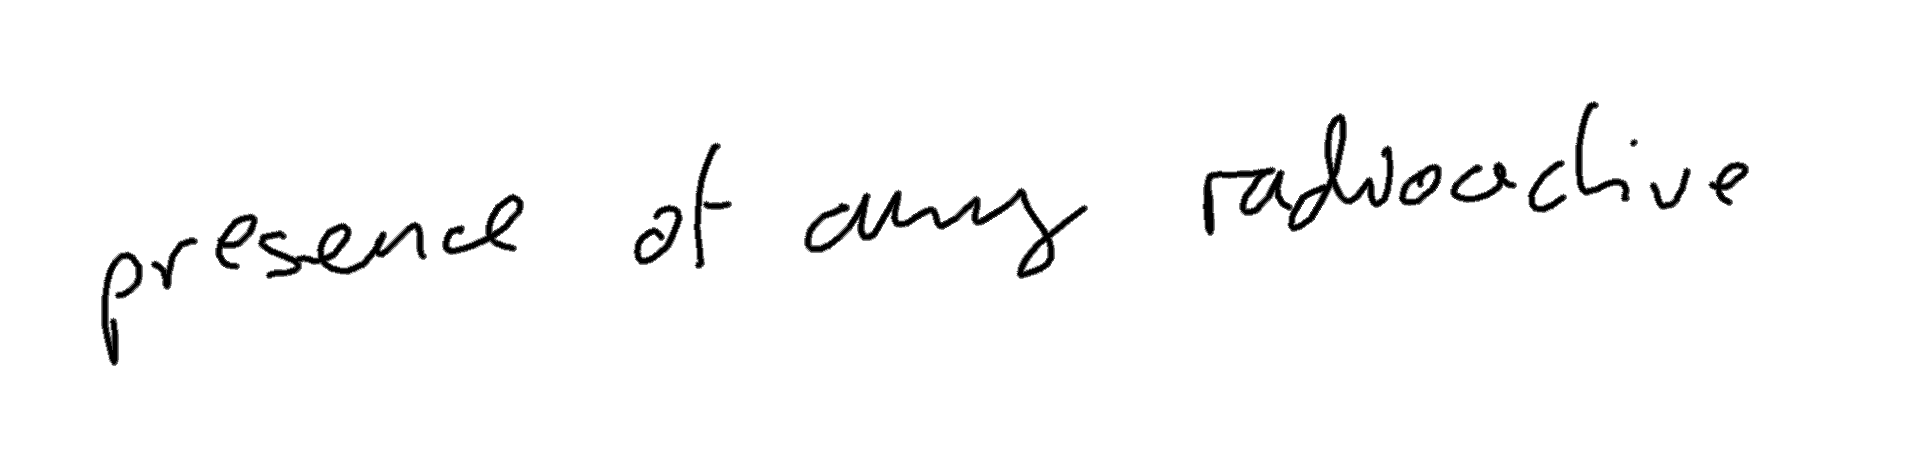 presence of any radioactive